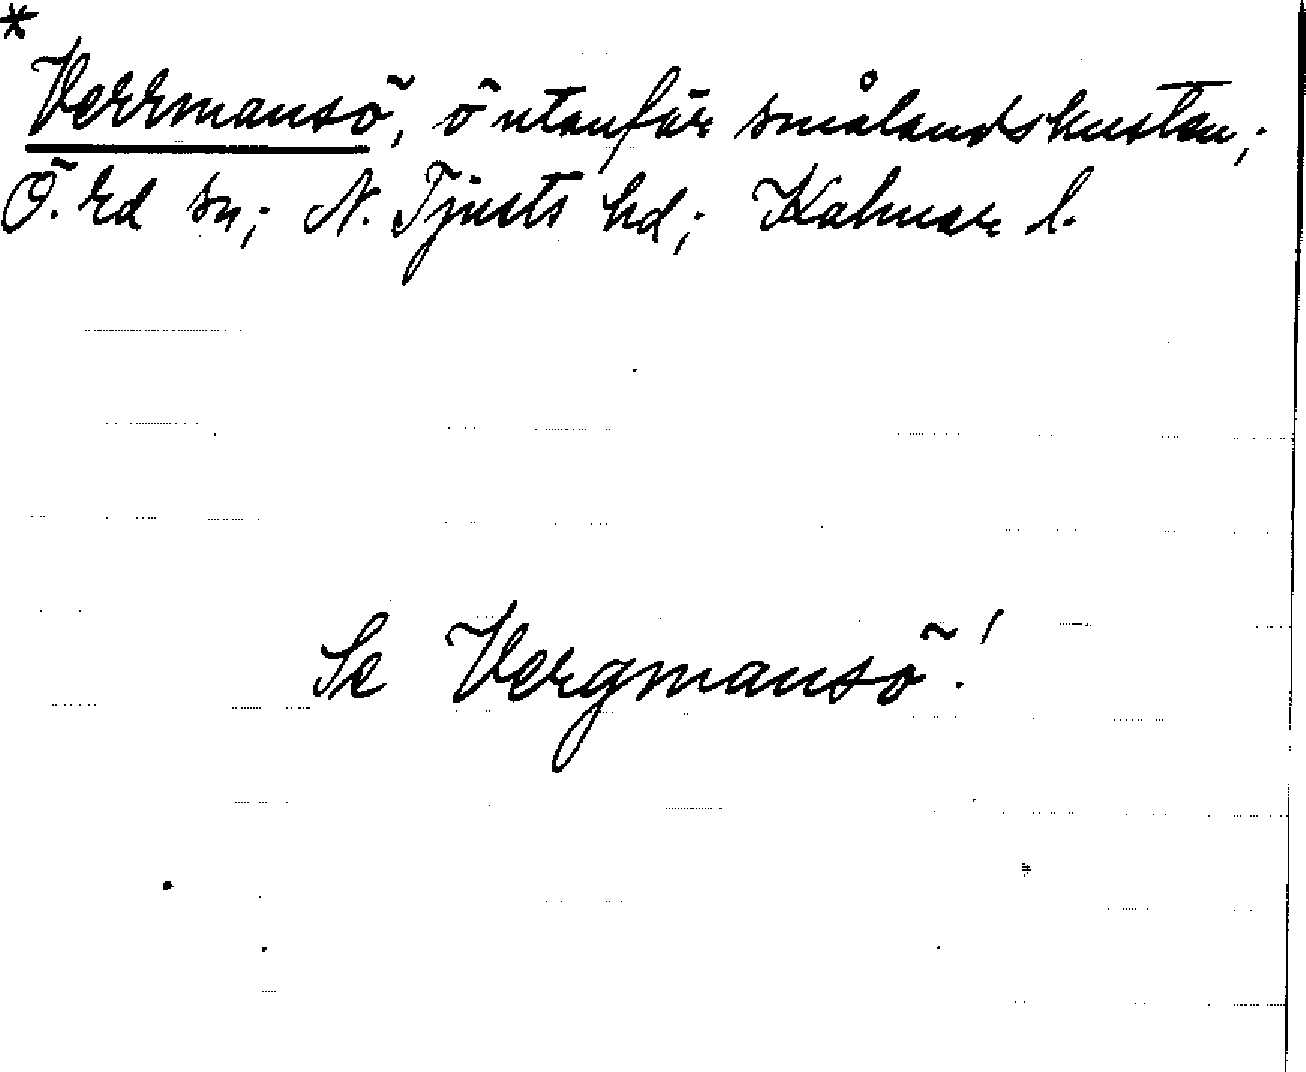 *
Verrmansö, ö utanför smålandskusten;
Ö. Ed sn; N. Tjusts hd; Kalmar l.
Se Vergmansö!